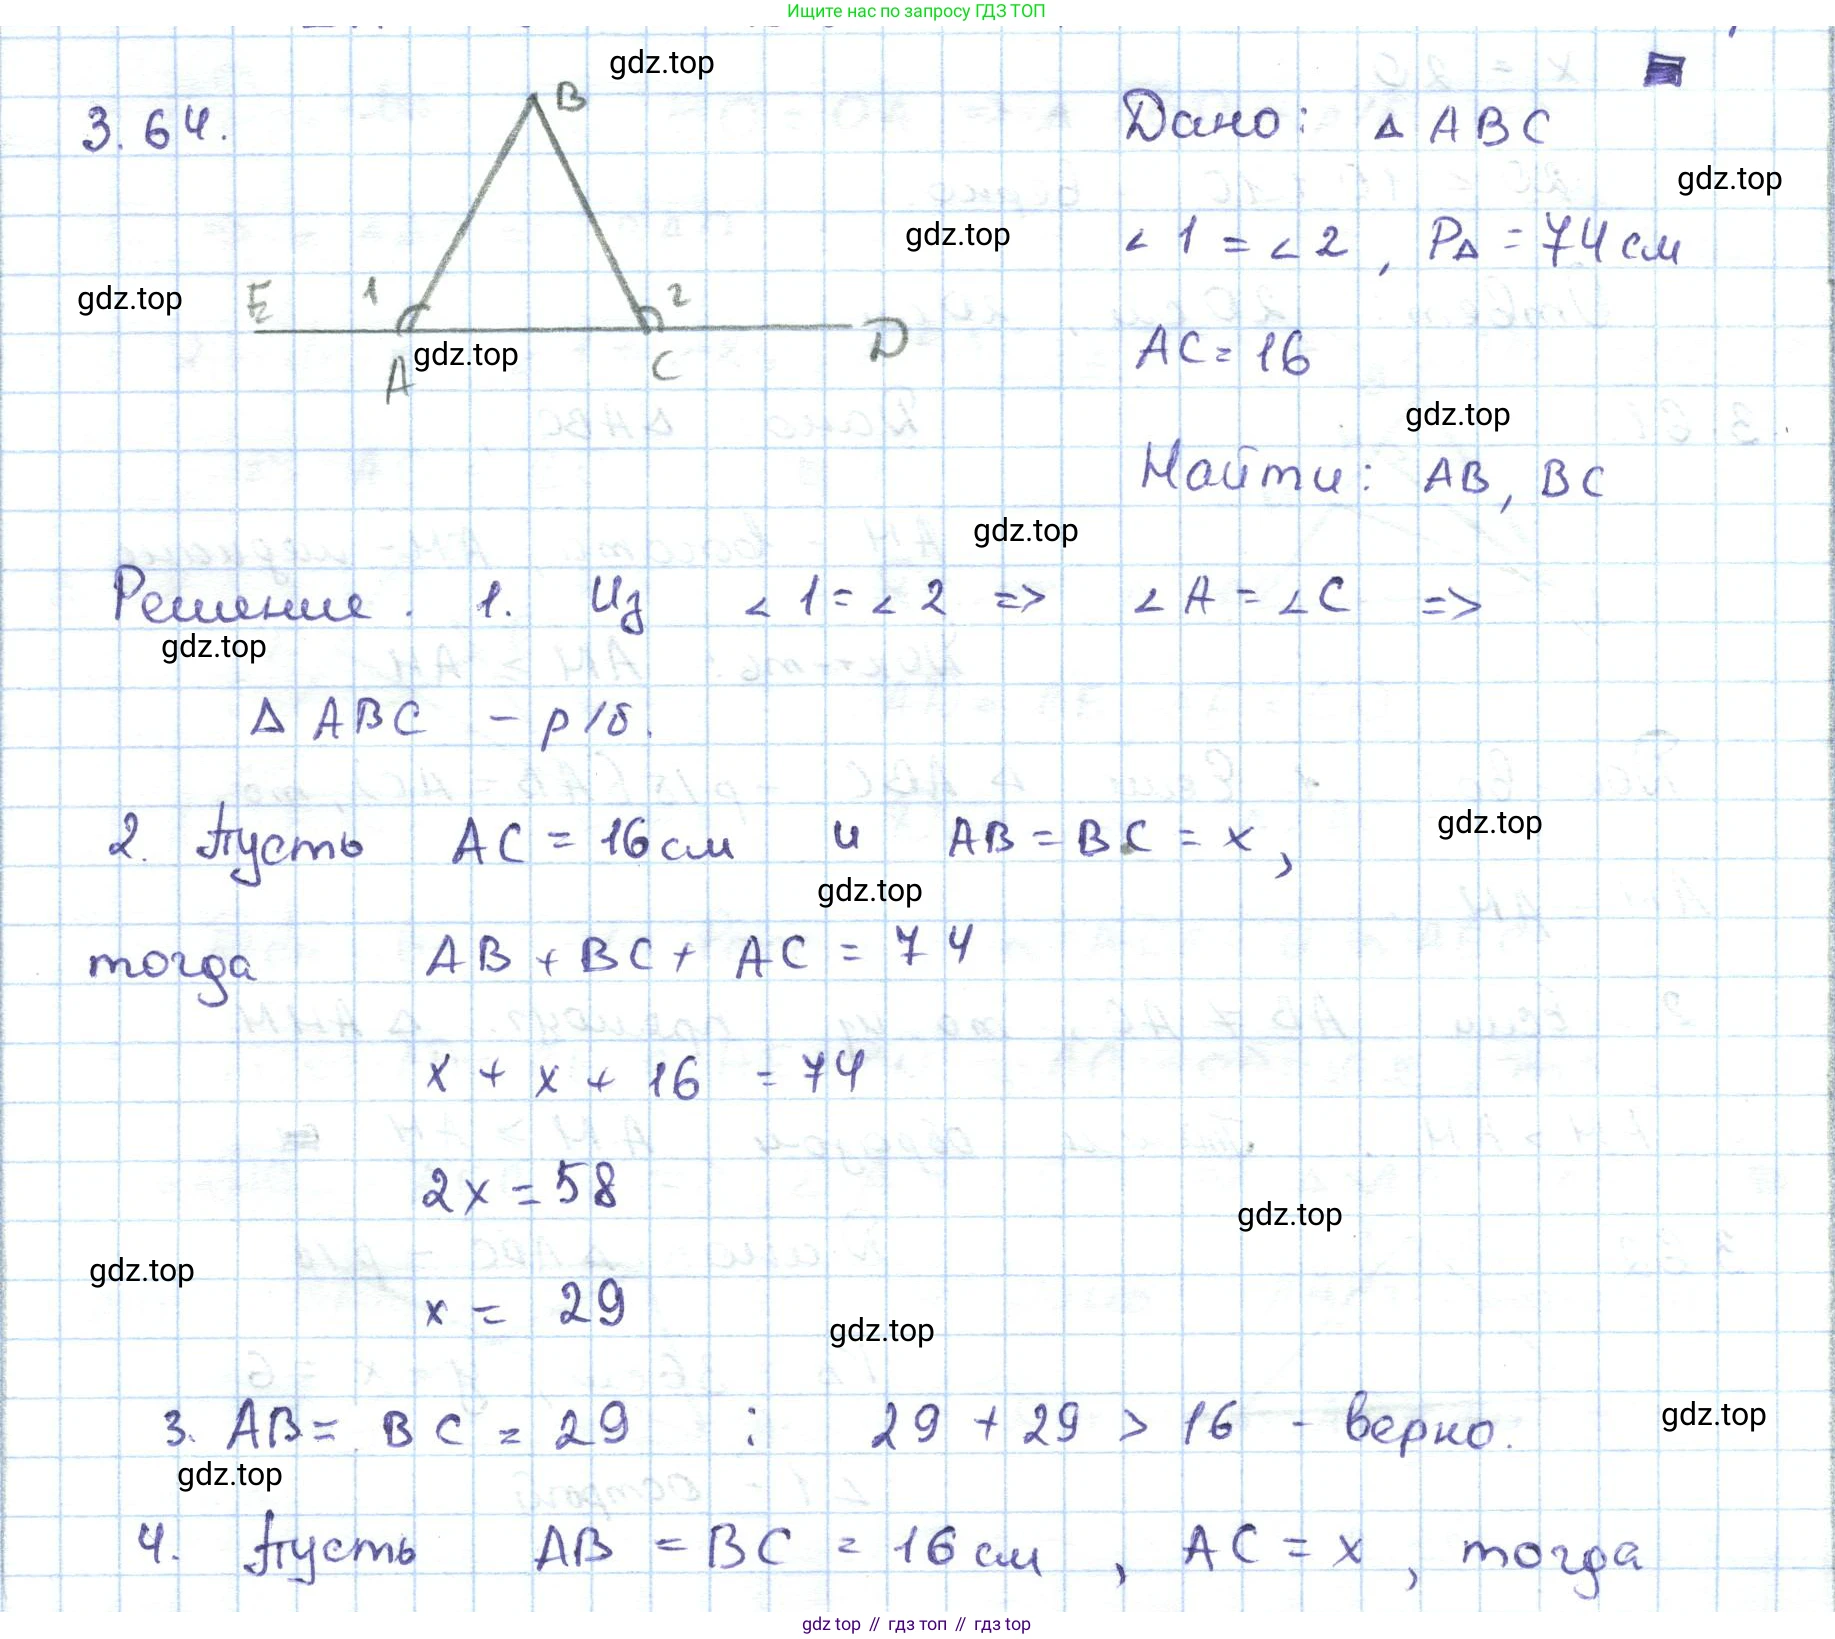 Ищите нас по запросу ГДЗ ТОП
gdz.top
3.64.
B
Дано: Δ ABC
gdz.top
gdz.top
∠1 = ∠2, PΔ = 74 см
gdz.top
E 1 2
D
gdz.top
A C
AC = 16
gdz.top
Найти: AB, BC
gdz.top
Решение. 1. Из ∠1 = ∠2 => ∠A = ∠C =>
gdz.top
Δ ABC - р/б.
gdz.top
2. Пусть AC = 16 см и AB = BC = x,
gdz.top
тогда AB + BC + AC = 74
x + x + 16 = 74
2x = 58
gdz.top
gdz.top
x = 29
gdz.top
3. AB = BC = 29 ; 29 + 29 > 16 - верно.
gdz.top
gdz.top
4. Пусть AB = BC = 16 см, AC = x, тогда
gdz top // гдз топ // гдз top